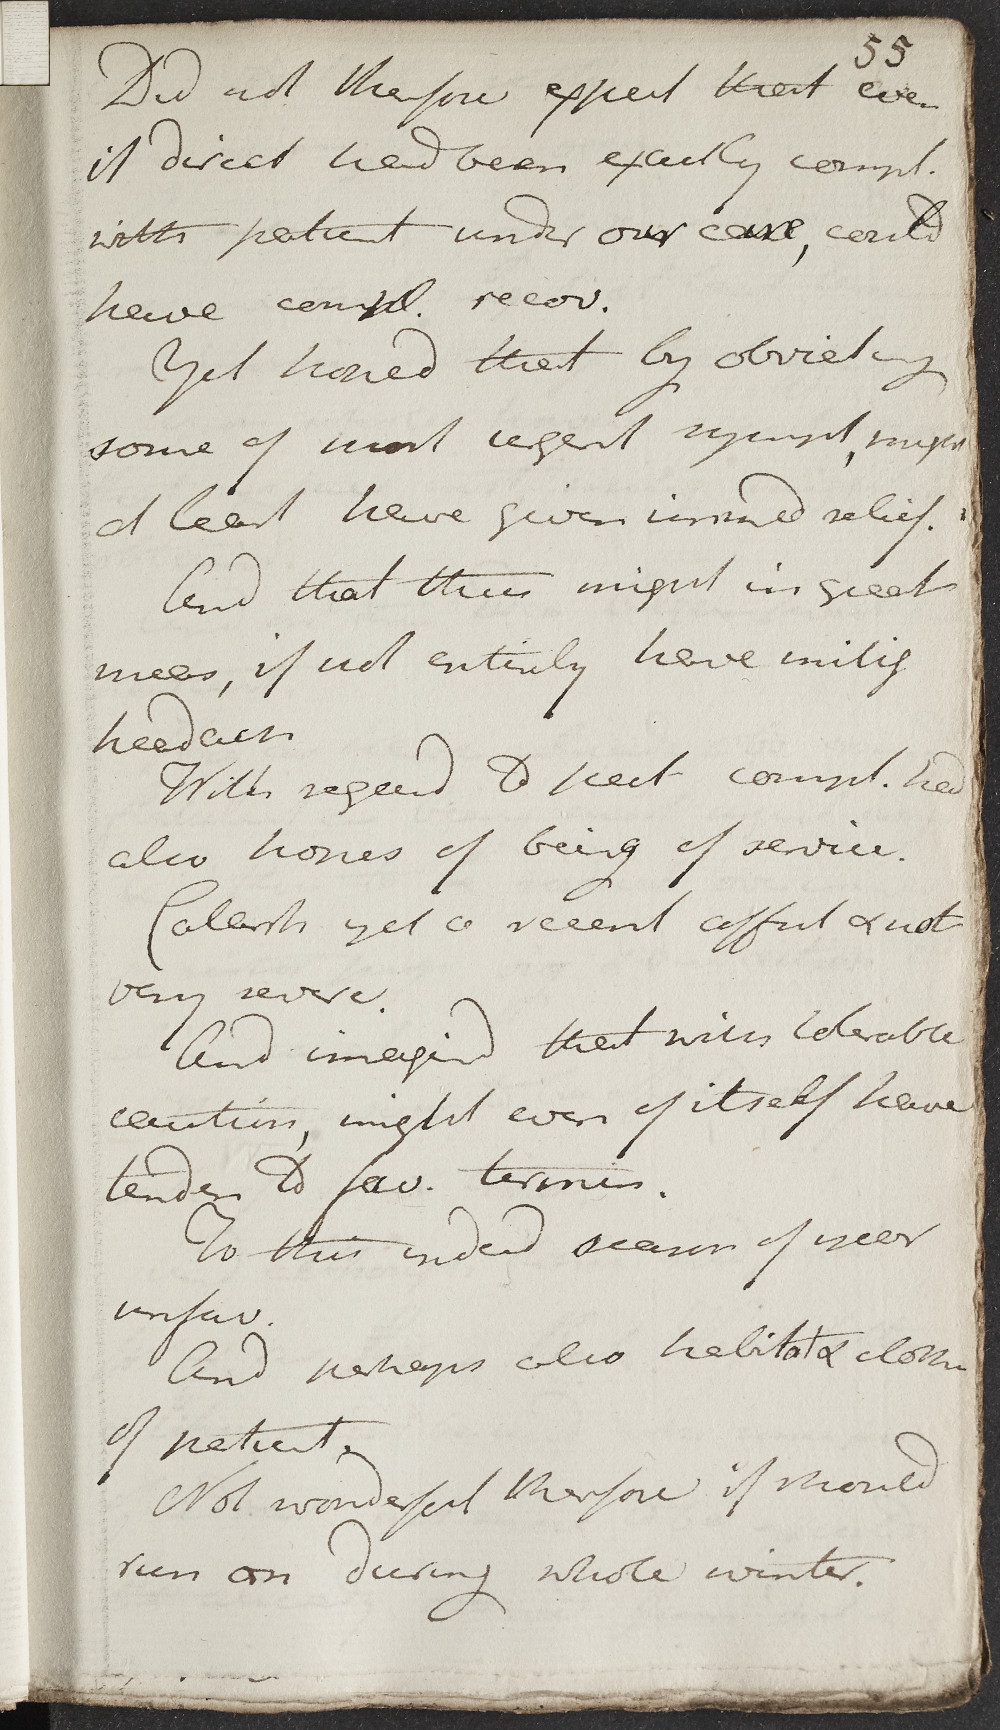 55
Did not therefore expect that even
if direct had been exactly compl.
with patient under our care, could
have compl. recov.
Yet hoped that by obviating
some of most urgent sympt, might
at least have given immed relief.
And that thus might in great
meas, if not entirely have mitig
headach
With regard to pect compl. had
also hopes of being of service.
Catarrh yet a recent affect & not
very severe.
And imagind that with tolerable
caution, might even of itself have
tenden to fav. termin.
To this indeed season of year
unfav.
And perhaps also habitat &
of patient.
Not wonderful therefore if should
run on during whole winter.